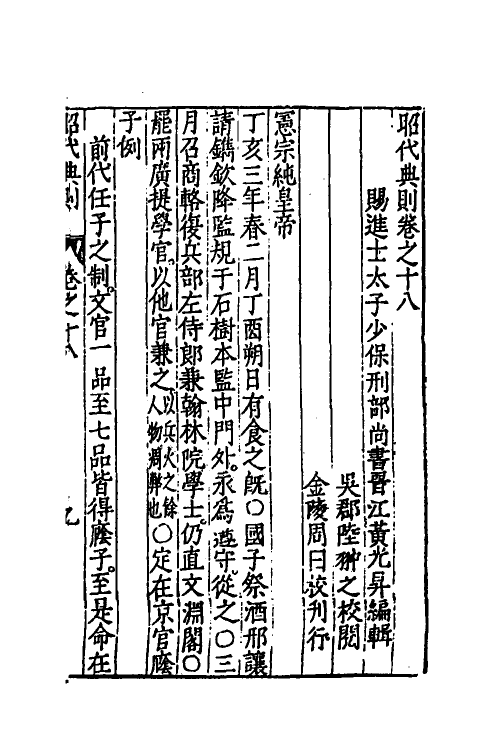 昭代典則卷之十八
賜進士太子少保刑部尚書晋江黃光昇編輯
吳郡陸翀之校閱
金陵周曰校刋行
憲宗純皇帝
丁亥三年春二月丁酉朔日有食之旣○國子祭酒邢讓
請鐫欽降監規于石樹本監中門外永爲遵守從之○三
月召商輅復兵部左侍郎兼翰林院學士仍直文淵閣○
罷兩廣提學官以他官兼之以兵火之餘人物凋弊也○定在京官廕
子例
前代任子之制文官一品至七品皆得廕子至是命在
昭代典則 卷之十八 九